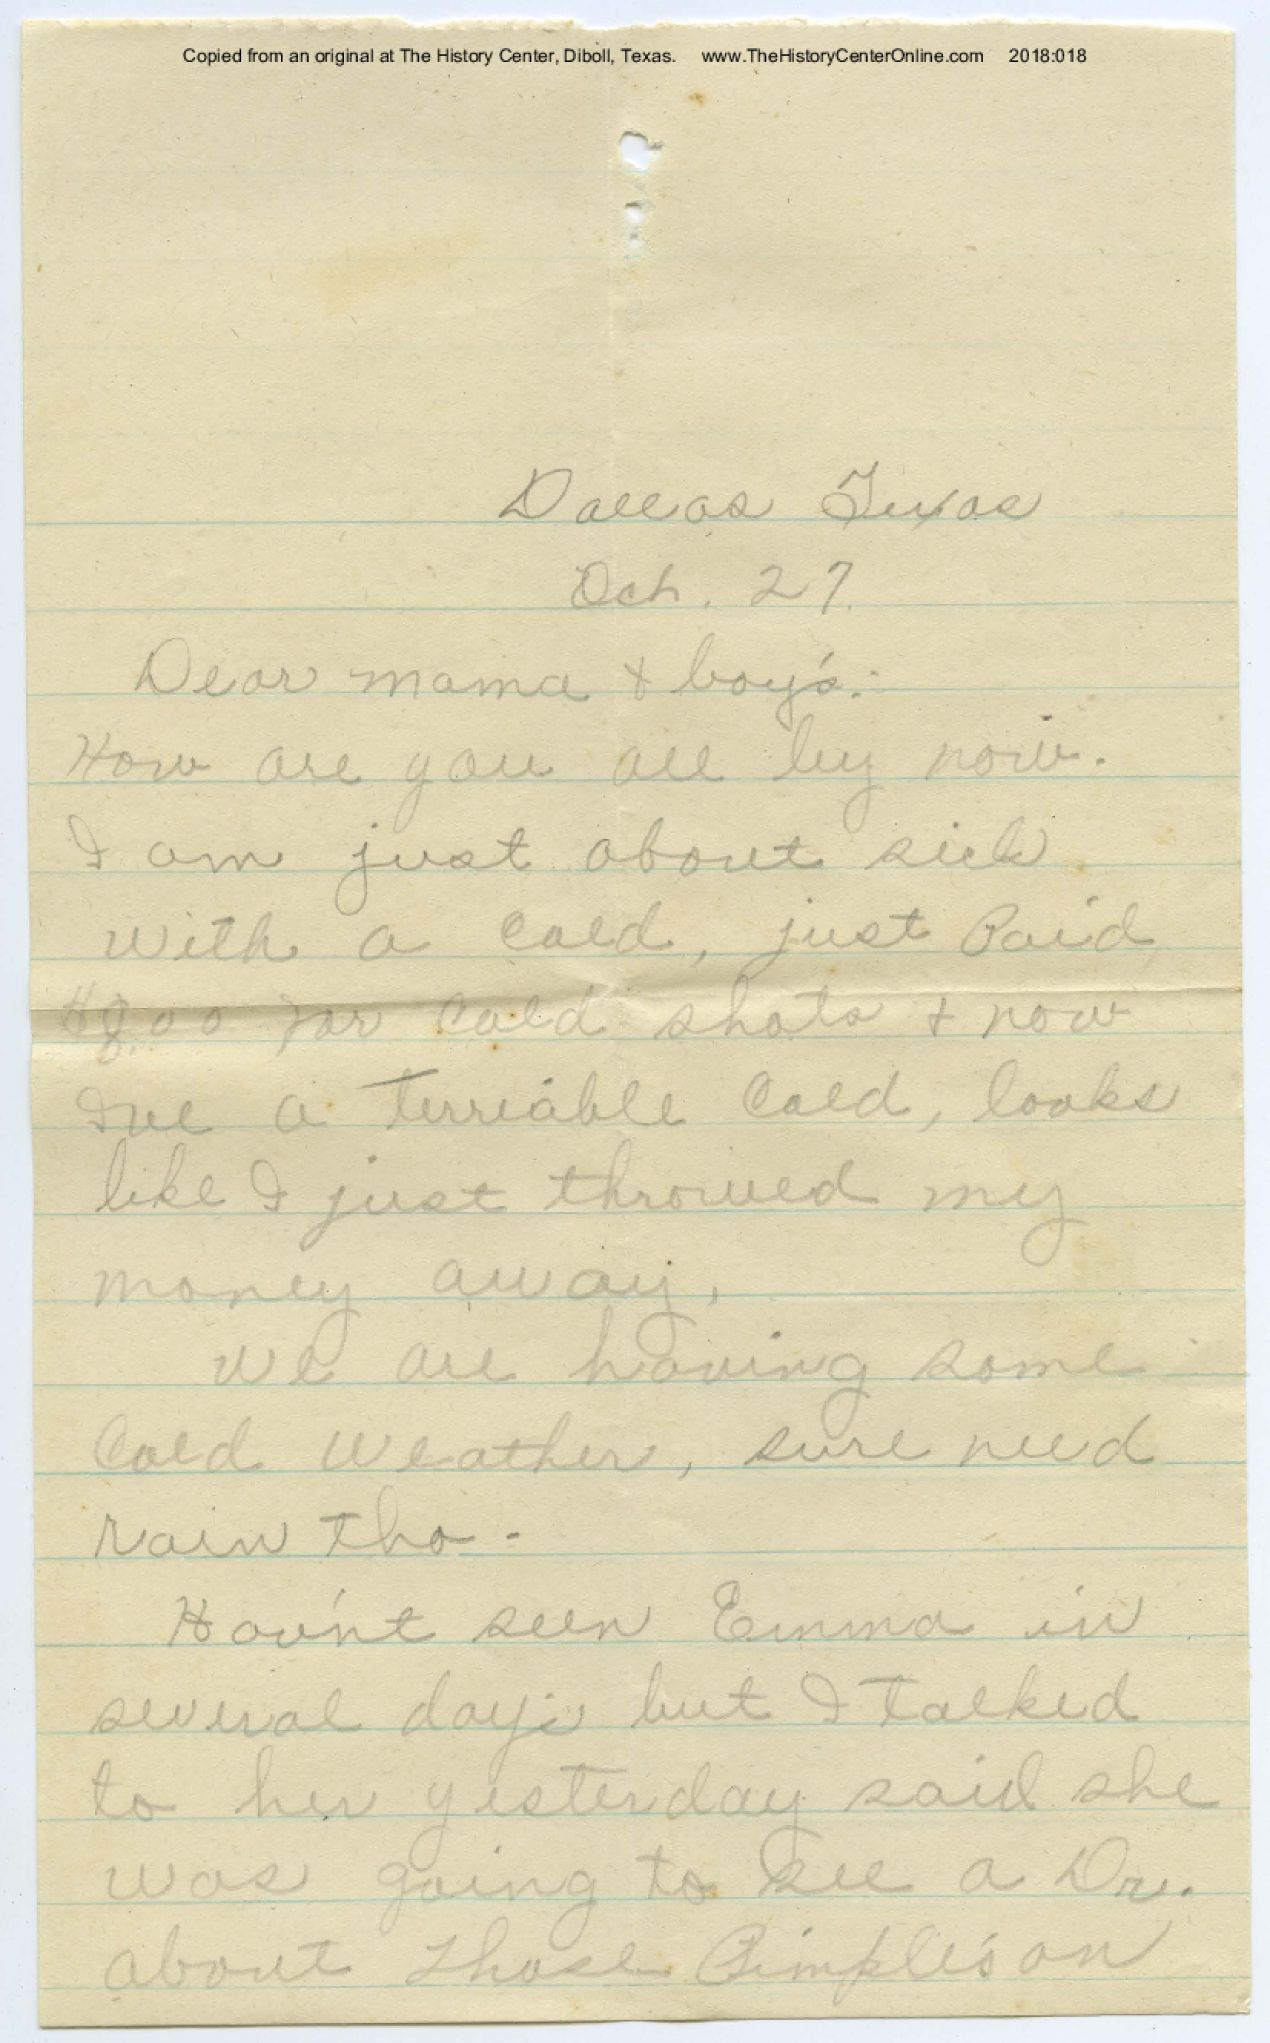 Copied from an original at The History Center, Diboll, Texas. www.TheHistoryCenterOnline.com 2018:018
Dallas Texas
Oct. 27.
Dear mama & boy's:
How are you all by now.
I am just about sick
with a cold, just Paid
$8.00 for cold shots & now
Ive a terriable cold, looks
like I just throwed my
money away,
we are having some
cold weather, sure need
rain tho -
Hav'nt seen Emma in
several days but I talked
to her yesterday said she
was going to see a Dr.
about those Pimple's on